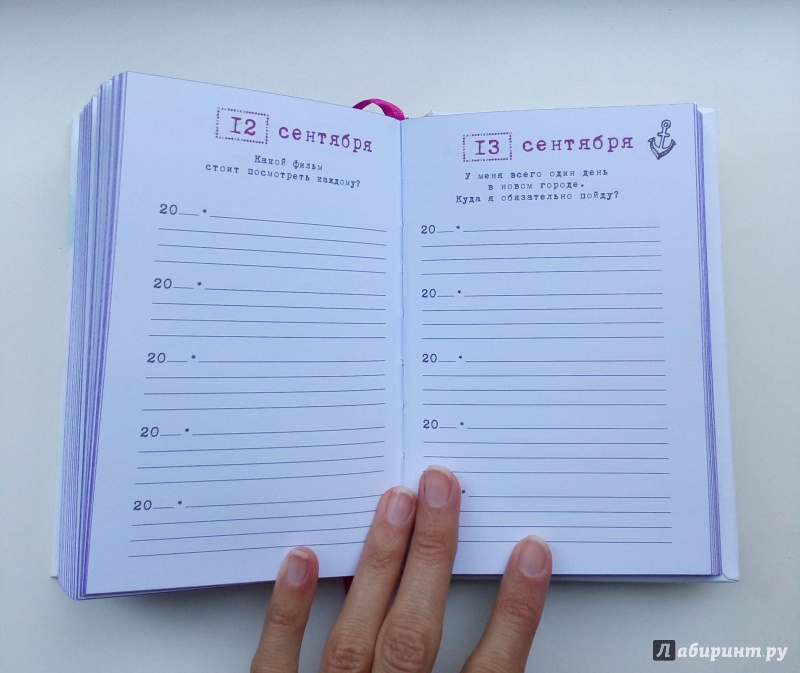 12 сентября
Какой фильм
стоит посмотреть каждому?
20__ •
20__ •
20__ •
20__ •
20__ •
13 сентября
У меня всего один день
в новом городе.
Куда я обязательно пойду?
20__ •
20__ •
20__ •
20__ •
•
Лабиринт.ру